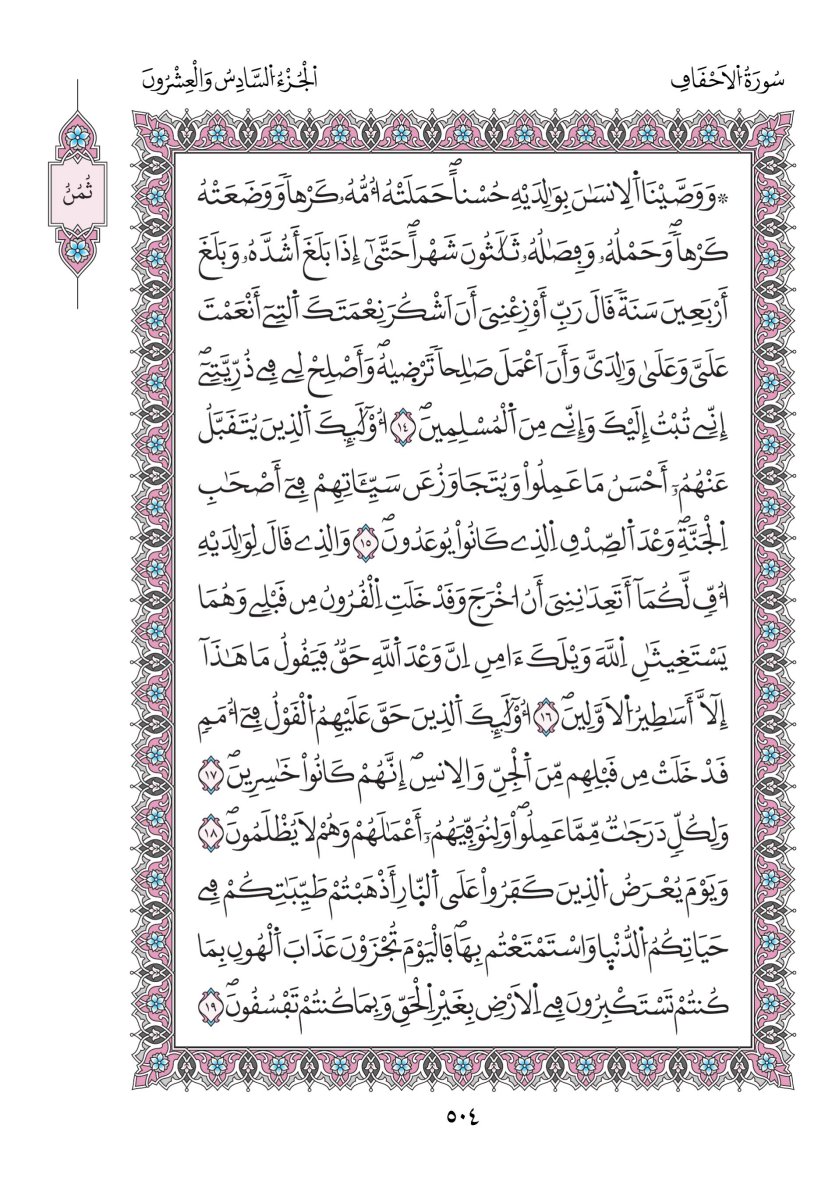 سُورَةُ اُ۬لَاحْقَافِ
اَ۬لْجُزْءُ اُ۬لسَّادِسُ وَالْعِشْرُونَ
ثُمُنُ
۞وَوَصَّيْنَا اَ۬لِانسَٰنَ بِوَٰلِدَيْهِ حُسْناًۖ حَمَلَتْهُ أُمُّهُۥ كَرْهاٗ وَوَضَعَتْهُ
كَرْهاٗۖ وَحَمْلُهُۥ وَفِصَٰلُهُۥ ثَلَٰثُونَ شَهْراًۖ حَتَّىٰٓ إِذَا بَلَغَ أَشُدَّهُۥ وَبَلَغَ
أَرْبَعِينَ سَنَةٗ قَالَ رَبِّ أَوْزِعْنِيَ أَنَ اَشْكُرَ نِعْمَتَكَ اَ۬لتِےٓ أَنْعَمْتَ
عَلَيَّ وَعَلَىٰ وَٰلِدَيَّ وَأَنَ اَعْمَلَ صَٰلِحاٗ تَرْضِيٰهُۖ وَأَصْلِحْ لِے فِے ذُرِّيَّتِيَۖ
إِنِّے تُبْتُ إِلَيْكَ وَإِنِّے مِنَ اَ۬لْمُسْلِمِينَۖ ١٤ أُوْلَٰٓئِكَ اَ۬لذِينَ يُتَقَبَّلُ
عَنْهُمُۥٓ أَحْسَنُ مَا عَمِلُواْ وَيُتَجَاوَزُ عَن سَيِّـَٔاتِهِمْ فِےٓ أَصْحَٰبِ
اِ۬لْجَنَّةِۖ وَعْدَ اَ۬لصِّدْقِ اِ۬لذِے كَانُواْ يُوعَدُونَۖ ١٥ وَالذِے قَالَ لِوَٰلِدَيْهِ
أُفّٖ لَّكُمَآ أَتَعِدَٰنِنِيَ أَنُ ا۟خْرَجَ وَقَدْ خَلَتِ اِ۬لْقُرُونُ مِن قَبْلِے وَهُمَا
يَسْتَغِيثَٰنِ اِ۬للَّهَ وَيْلَكَ ءَامِنِ اِنَّ وَعْدَ اَ۬للَّهِ حَقّٞ فَيَقُولُ مَا هَٰذَآ
إِلَّآ أَسَٰطِيرُ اُ۬لَاوَّلِينَۖ ١٦ أُوْلَٰٓئِكَ اَ۬لذِينَ حَقَّ عَلَيْهِمُ اُ۬لْقَوْلُ فِےٓ أُمَمٖ
قَدْ خَلَتْ مِن قَبْلِهِم مِّنَ اَ۬لْجِنِّ وَالِانسِۖ إِنَّهُمْ كَانُواْ خَٰسِرِينَۖ ١٧
وَلِكُلّٖ دَرَجَٰتٞ مِّمَّا عَمِلُواْۖ وَلِنُوَفِّيَهُمُۥٓ أَعْمَٰلَهُمْ وَهُمْ لَا يُظْلَمُونَۖ ١٨
وَيَوْمَ يُعْرَضُ اُ۬لذِينَ كَفَرُواْ عَلَى اَ۬لنّ۪ارِ أَذْهَبْتُمْ طَيِّبَٰتِكُمْ فِے
حَيَاتِكُمُ اُ۬لدُّنْي۪ا وَاسْتَمْتَعْتُم بِهَاۖ فَالْيَوْمَ تُجْزَوْنَ عَذَابَ اَ۬لْهُونِ بِمَا
كُنتُمْ تَسْتَكْبِرُونَ فِے اِ۬لَارْضِ بِغَيْرِ اِ۬لْحَقِّ وَبِمَا كُنتُمْ تَفْسُقُونَۖ ١٩
٥٠٤